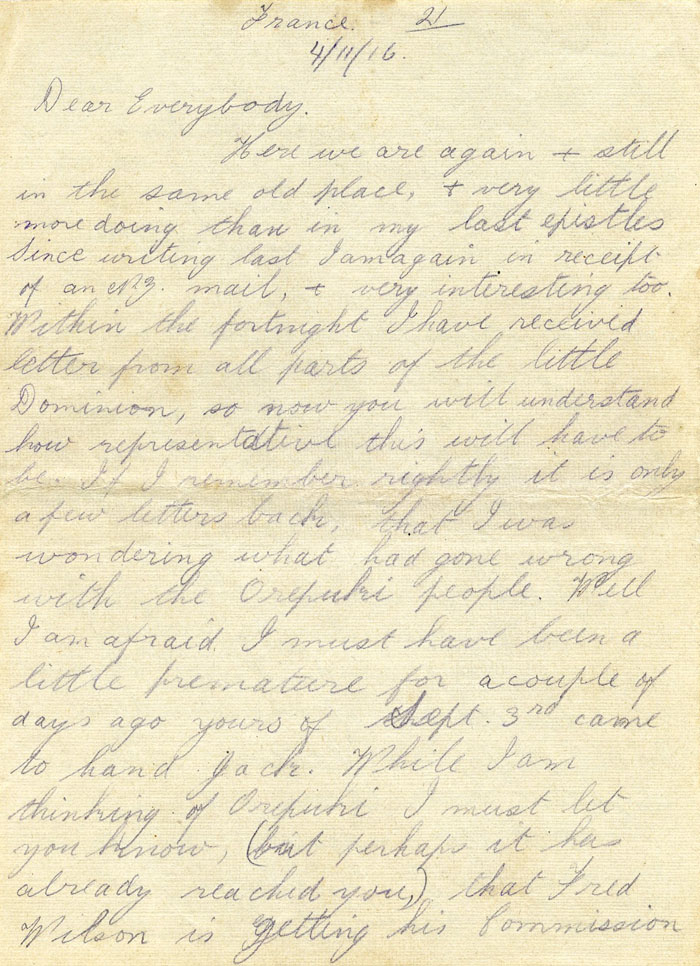 France. 21
4/11/16.
Dear Everybody.
Here we are again + still
in the same old place, + very little
more doing than in my last epistles
Since writing last I am again in receipt
of an NZ. mail, + very interesting too.
Within the fortnight I have received
letter from all parts of the little
Dominion, so now you will understand
how representative this will have to
be. If I remember rightly it is only
a few letters back, that I was
wondering what had gone wrong
with the Orepuki people. Well
I am afraid I must have been a
little premature for a couple of
days ago yours of Sept. 3rd came
to hand Jack. While I am
thinking of Orepuki I must let
you know, (but perhaps it has
already reached you,) that Fred
Wilson is getting his Commission